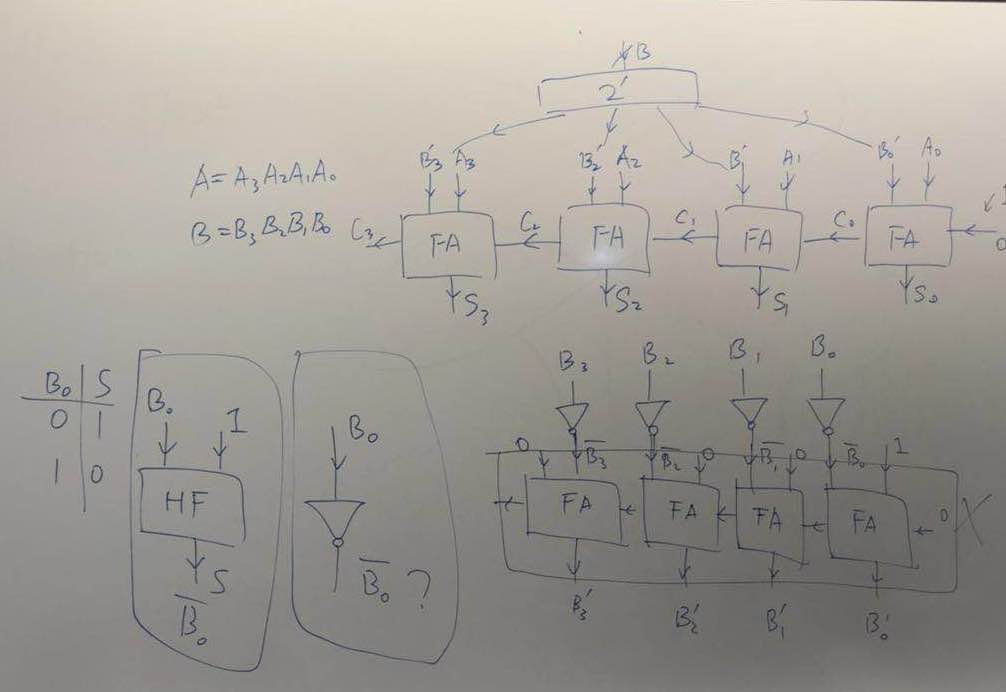 B
2'
B₃' A₃ B₂' A₂ B' A₁ B₀' A₀
A = A₃A₂A₁A₀
B = B₃B₂B₁B₀
C₃ FA C₂ FA C₁ FA C₀ FA
0
S₃ S₂ S₁ S₀
B₃ B₂ B₁ B₀
B₀ S
0 1
1 0
B₀ 1
HF
S
B̅₀
B₀
B̅₀ ?
0 B̅₃ B̅₂ 0 B̅₁ 0 B̅₀ 1
FA FA FA FA 0 X
B₃' B₂' B₁' B₀'